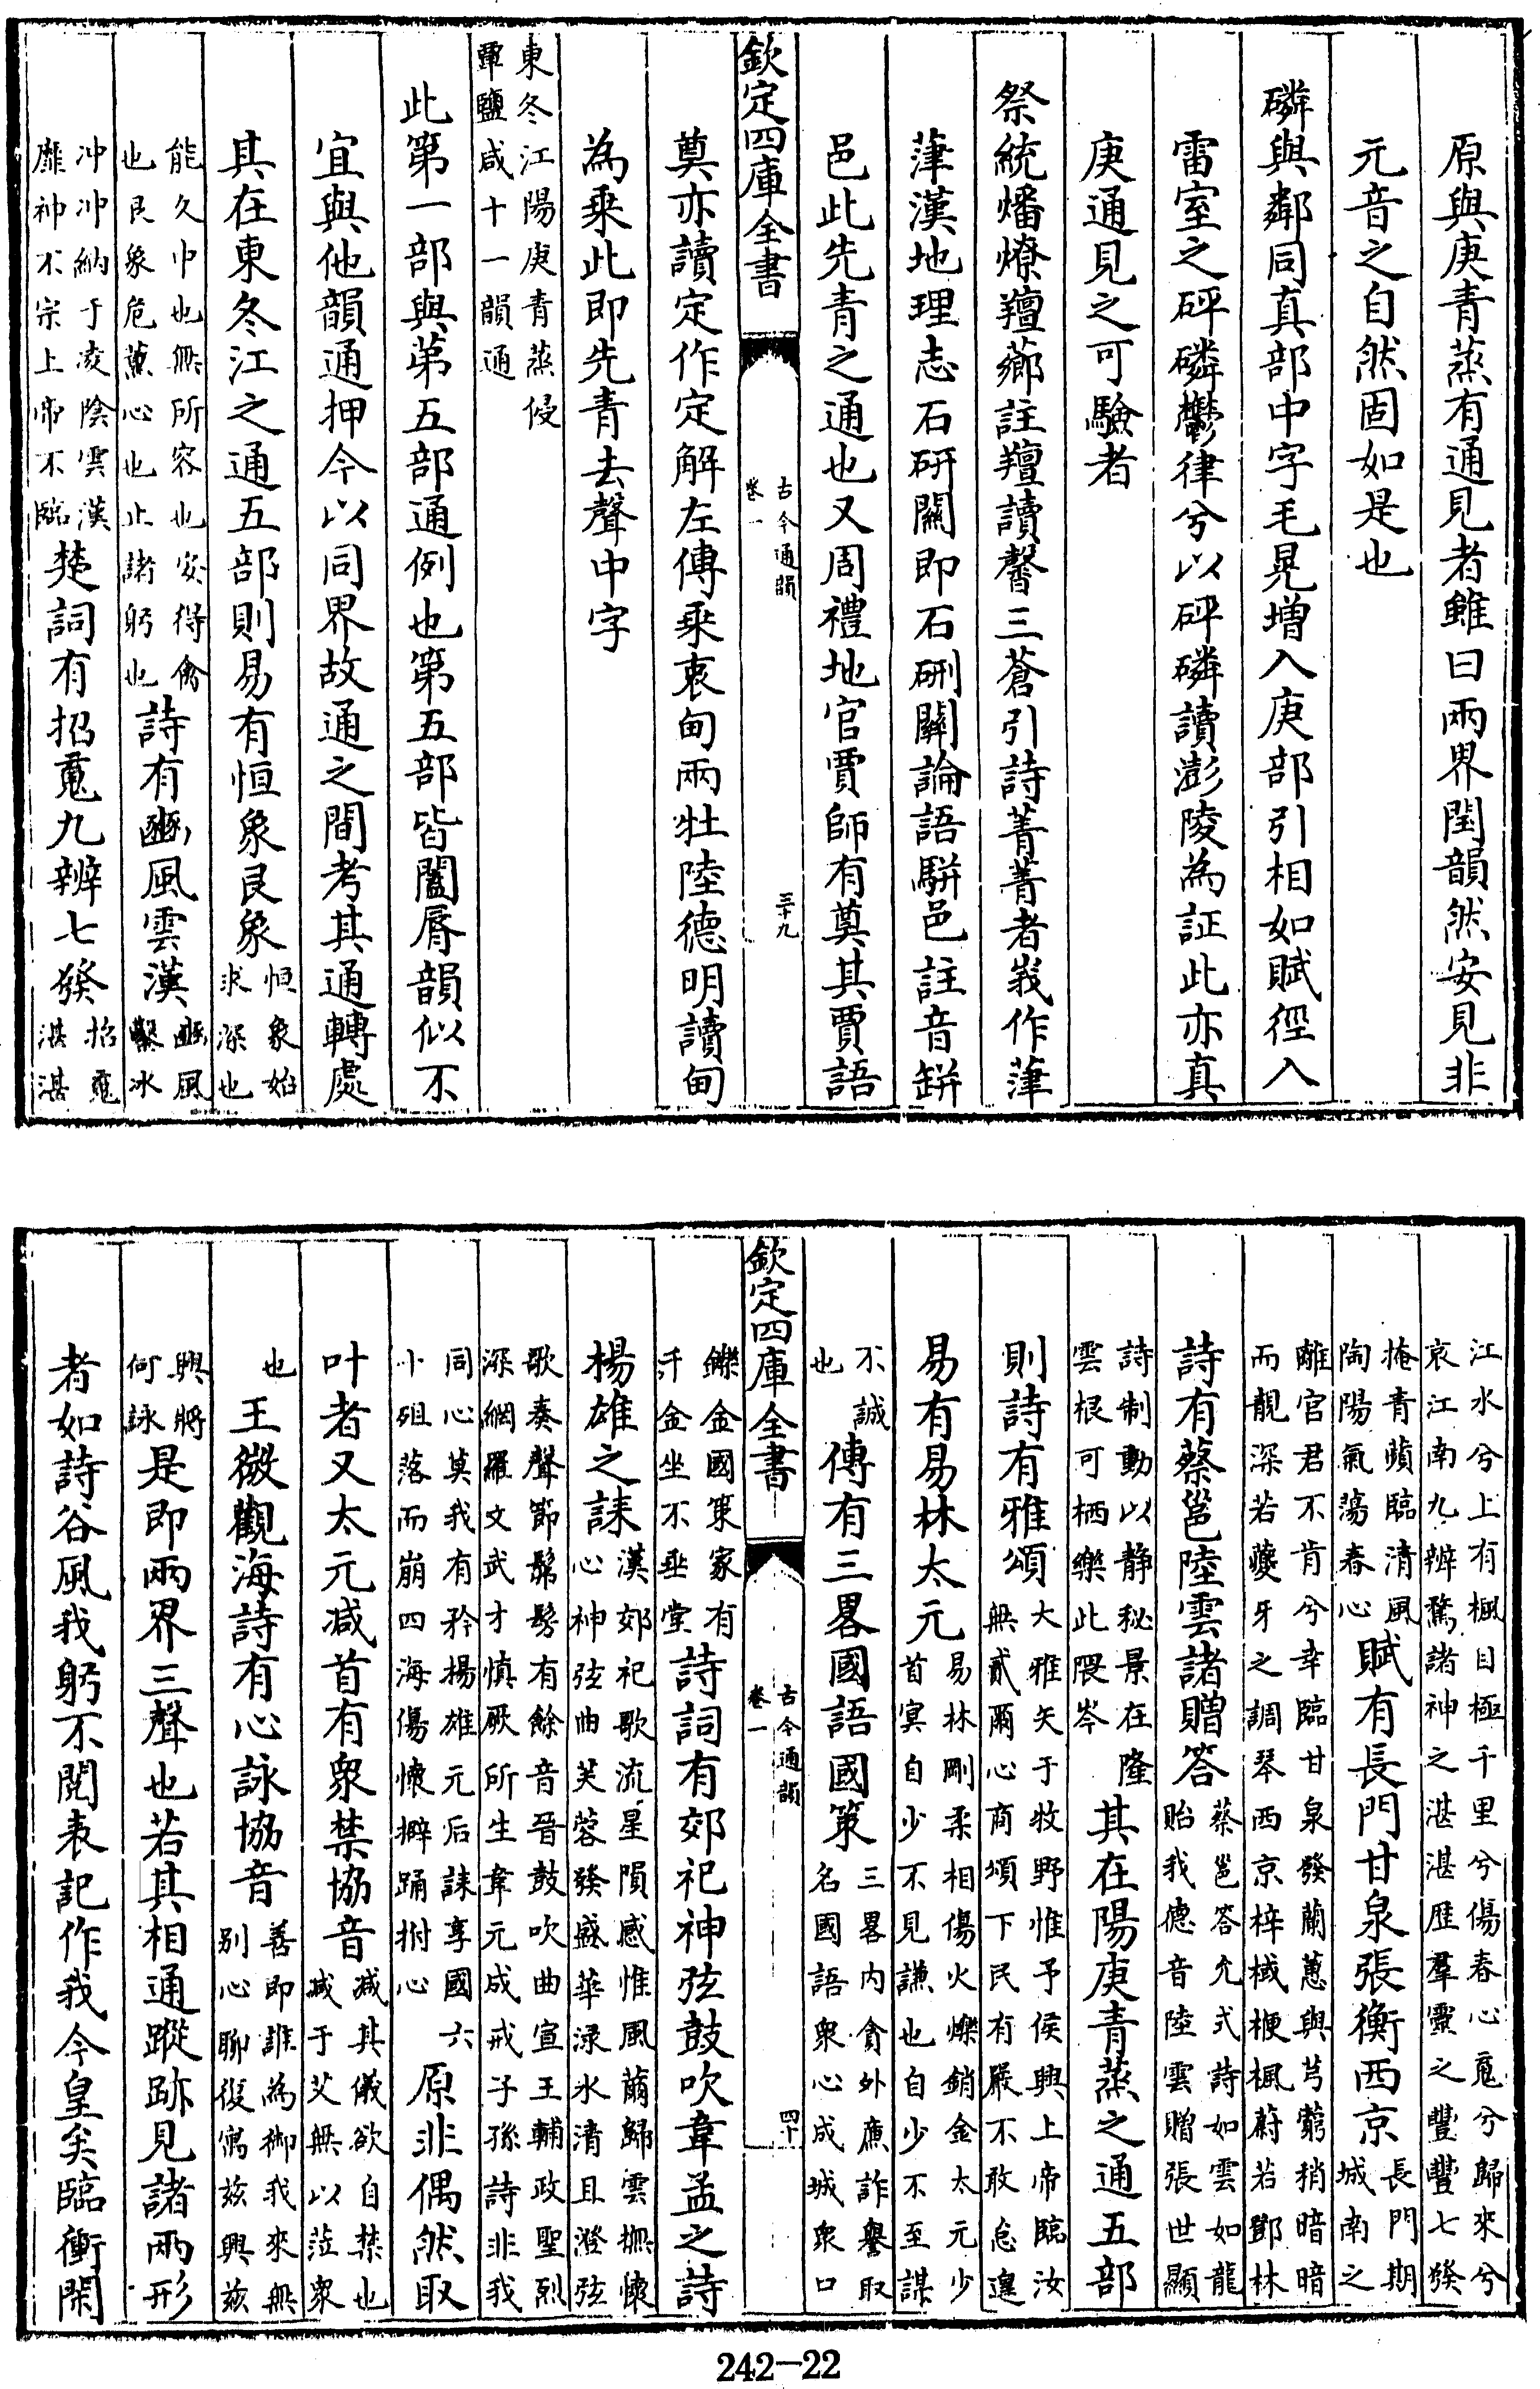 原與庚青蒸有通見者雖曰兩界閏韻然安見非
元音之自然固如是也
磷與鄰同真部中字毛晃增入庚部引相如賦徑入
雷室之砰磷鬱律兮以砰磷讀澎陵為証此亦真
庚通見之可驗者
祭統燔燎羶薌註羶讀馨三蒼引詩菁菁者莪作葏
葏漢地理志石研關即石硎關論語駢邑註音缾
邑此先青之通也又周禮地官賈師有奠其賈語
欽定四庫全書
古今通韻
卷一
三十九
奠亦讀定作定解左傳乘衷甸兩牡陸德明讀甸
為乘此即先青去聲中字
東冬江陽庚青蒸侵
覃鹽咸十一韻通
此第一部與第五部通例也第五部皆闔脣韻似不
宜與他韻通押今以同界故通之間考其通轉處
其在東冬江之通五部則易有恒象艮象
恒象始
求深也
能久中也無所容也安得禽
也艮象危薰心也止諸躬也
詩有豳風雲漢
豳風
鑿冰
冲冲納于凌陰雲漢
靡神不宗上帝不臨
楚詞有招䰟九辨七發
招䰟
湛湛
江水兮上有楓目極千里兮傷春心䰟兮歸來兮
哀江南九辨騖諸神之湛湛歷羣靈之豐豐七發
掩青蘋臨清風
陶陽氣蕩春心
賦有長門甘泉張衡西京
長門期
城南之
離宫君不肯兮幸臨甘泉發蘭蕙與芎藭稍暗暗
而靚深若夔牙之調琴西京梓棫楩楓蔚若鄧林
詩有蔡邕陸雲諸贈答
蔡邕答允式詩如雲如龍
貽我德音陸雲贈張世顯
詩制動以静秘景在隆
雲根可栖樂此隈岑
其在陽庚青蒸之通五部
則詩有雅頌
大雅矢于牧野惟予侯興上帝臨汝
無貳爾心商頌下民有嚴不敢怠遑
易有易林太元
易林剛柔相傷火爍銷金太元少
首冥自少不見謙也自少不至謀
不誠
也
傳有三畧國語國策
三畧内貪外㢘詐譽取
名國語衆心成城衆口
欽定四庫全書
古今通韻
卷一
四十
鑠金國策家有
千金坐不垂堂
詩詞有郊祀神弦鼓吹韋孟之詩
楊雄之誄
漢郊祀歌流星隕感惟風籋歸雲撫懷
心神弦曲芙蓉發盛華渌水清且澄弦
歌奏聲節髣髴有餘音晉鼓吹曲宣王輔政聖烈
深網羅文武才慎厥所生韋元成戒子孫詩非我
同心莫我有矜揚雄元后誄享國六
十殂落而崩四海傷懷擗踊拊心
原非偶然取
叶者又太元减首有衆禁協音
减其儀欲自禁也
减于艾無以涖衆
也
王微觀海詩有心詠協音
善即誰為御我來無
别心聊復寫兹興兹
興將
何詠
是即兩界三聲也若其相通蹤跡見諸兩形
者如詩谷風我躬不閲表記作我今皇矣臨衝閑
242—22